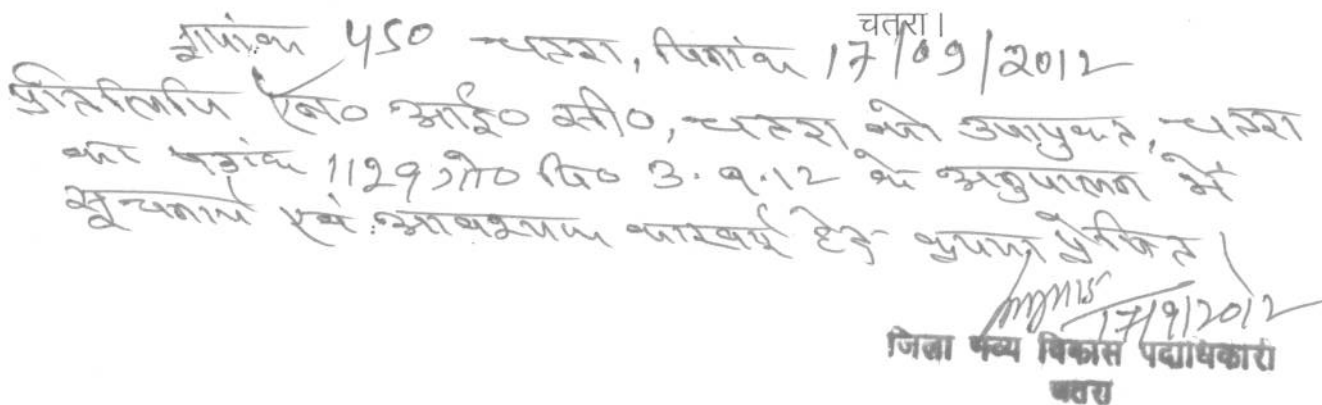 चतरा।
ज्ञापांक 450 चतरा, दिनांक 17/09/2012
प्रतिलिपि एन० आई० सी०, चतरा को उपायुक्त, चतरा
का पत्रांक 1129 गो० दि० 3.9.12 के अनुपालन में
सूचनार्थ एवं आवश्यक कारवाई हेतु कृपया प्रेषित।
17/9/2012
जिला गव्य विकास पदाधिकारी
चतरा